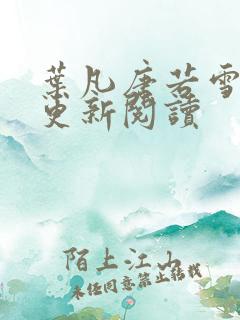 葉凡唐若雪
更新閱讀
陌上江山
未经同意禁止转载